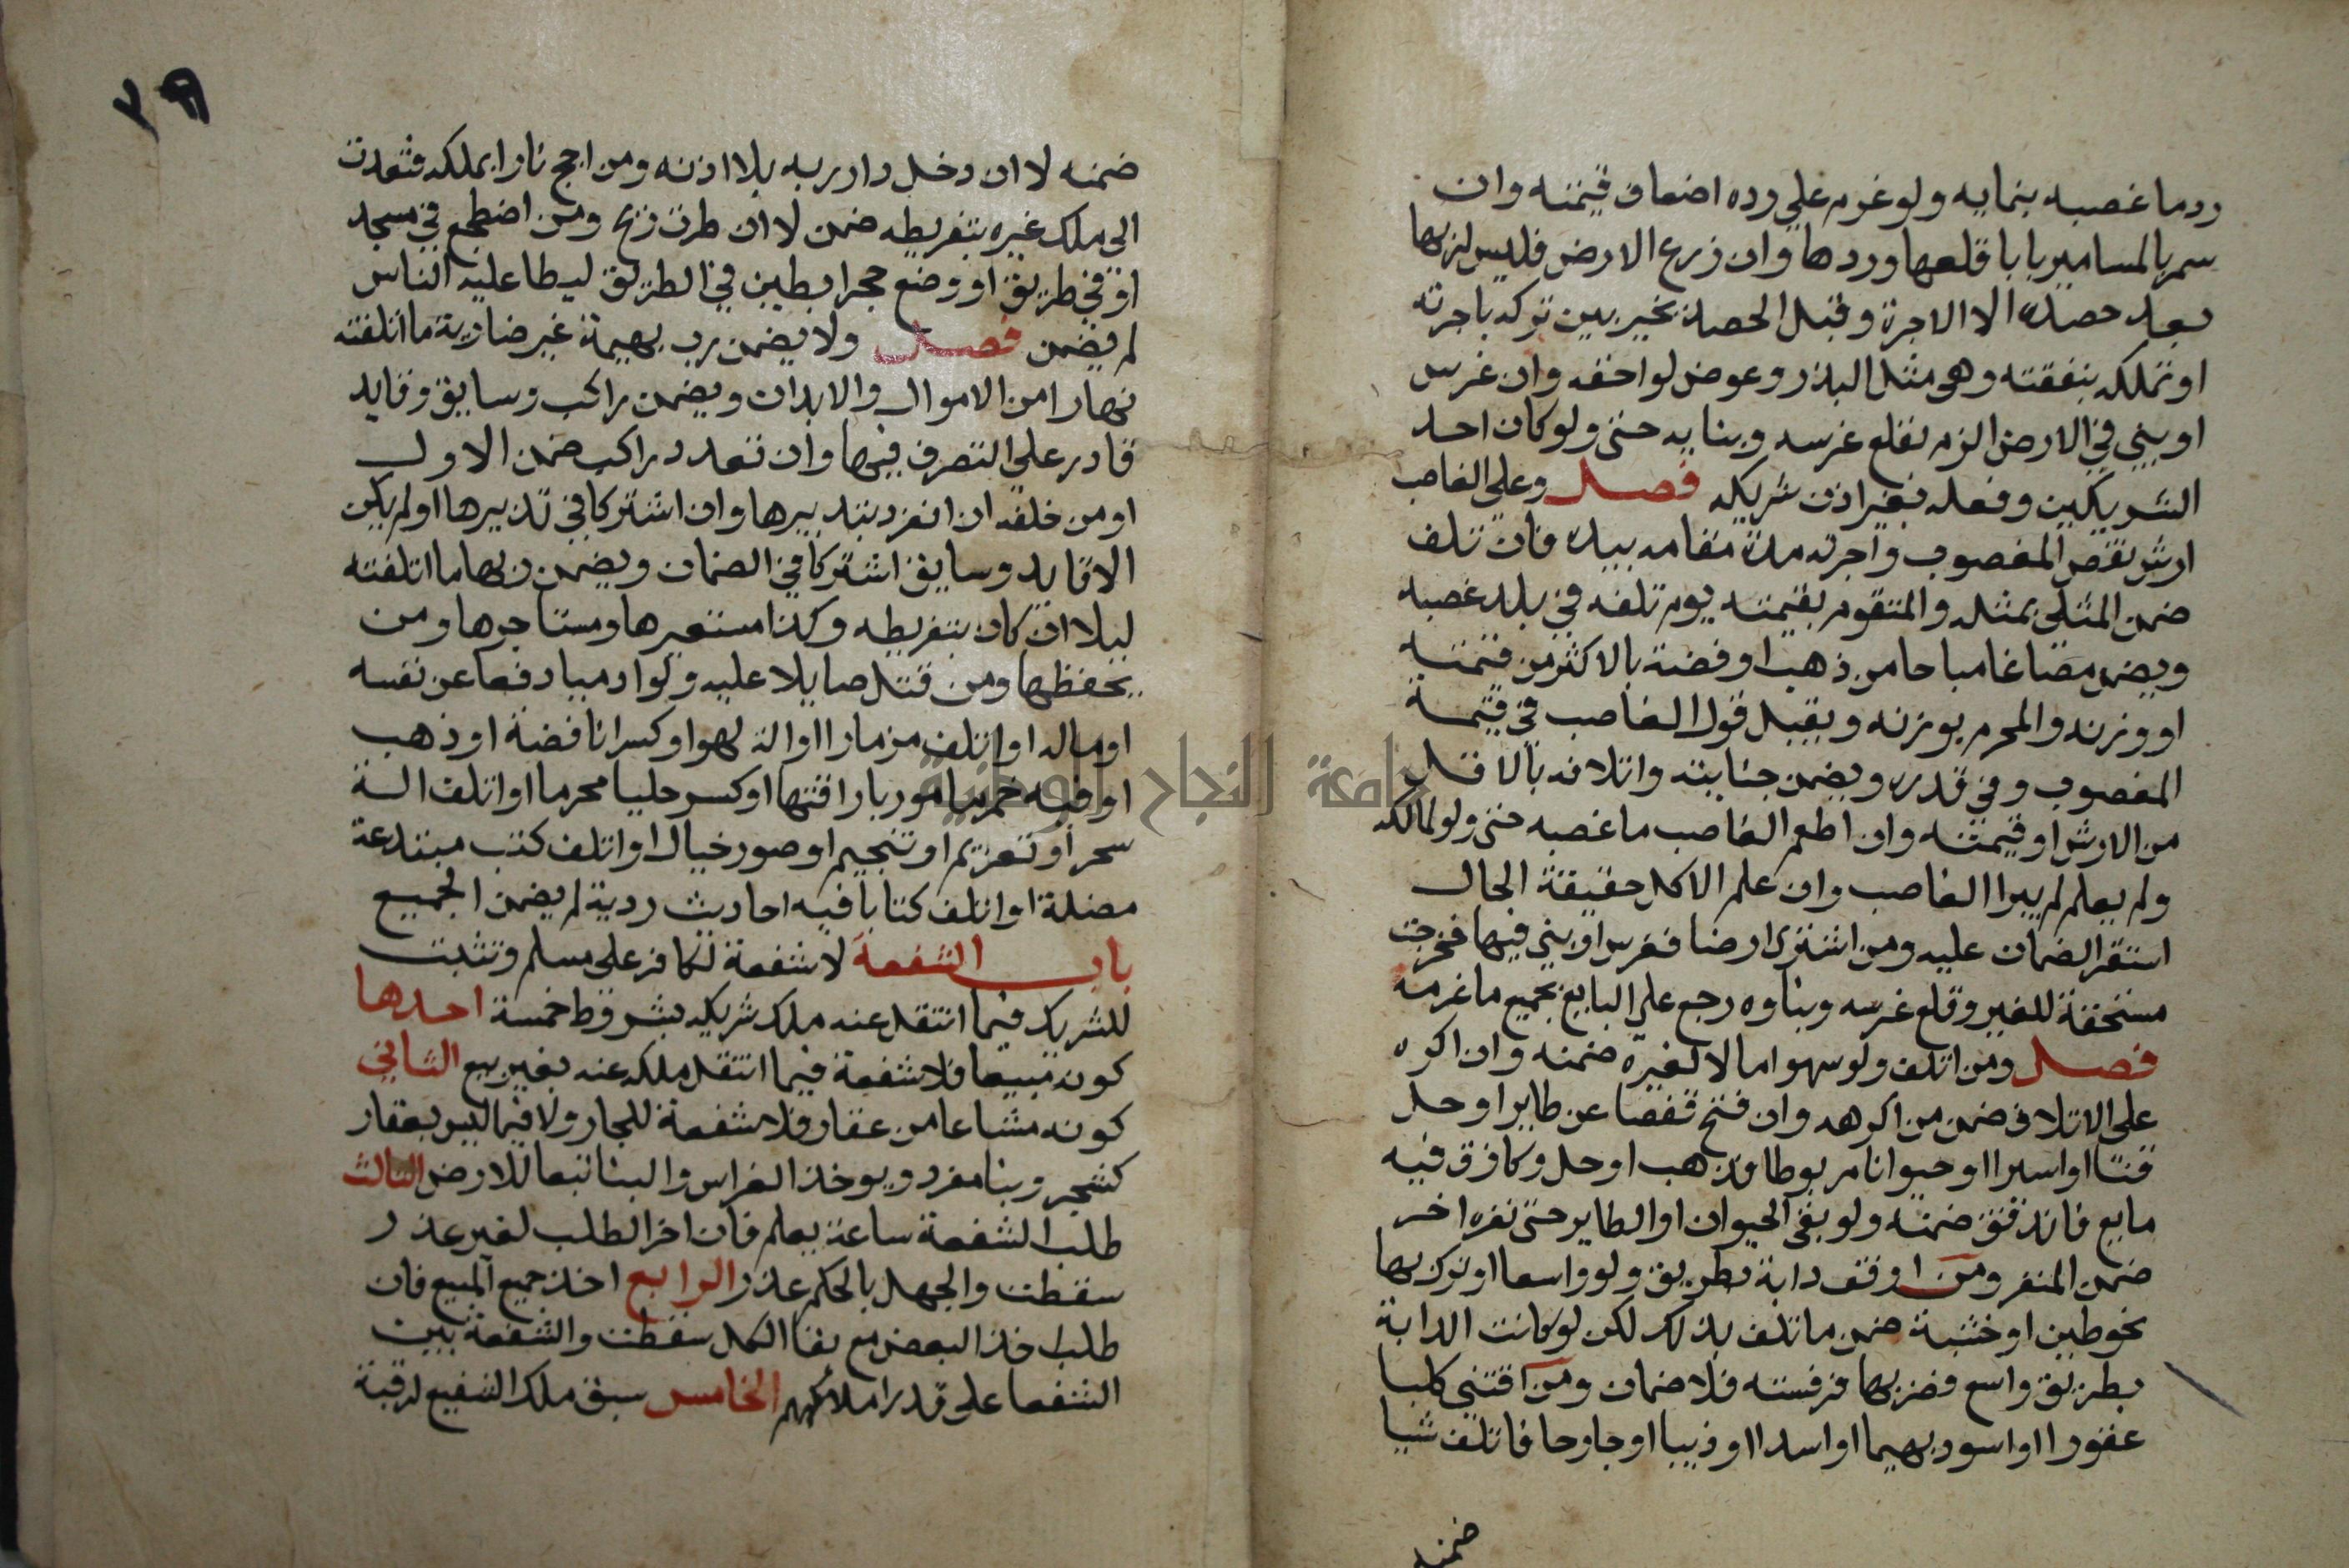 رد ما غصبه بنمايه ولو غرم على رده اضعاف قيمته وان
سمر بالمسامير بابا قلعها وردها وان زرع الارض فليس لربها
بعد حصده الا الاجرة وقبل الحصد يخير بين تركه باجرته
او تملكه بنفقته وهي مثل البذر وعوض لواحقه وان غرس
او بنى في الارض الزم بقلع غرسه وبنايه حتى ولو كان احد
الشريكين وفعله بغير اذن شريكه فصل وعلى الغاصب
ارش نقص المغصوب واجرته مدة مقامه بيده فان تلف
ضمن المثلي بمثله والمتقوم بقيمته يوم تلفه في بلد غصبه
ويضمن مصاغا مباحا من ذهب او فضة بالاكثر من قيمته
او وزنه والمحرم بوزنه ويقبل قول الغاصب في قيمة
المغصوب وفي قدره ويضمن جنايته واتلافه بالاقل
من الارش او قيمته وان اطعم الغاصب ما غصبه حتى ولو لمالكه
ولم يعلم لم يبرا الغاصب وان علم الاكل حقيقة الحال
استقر الضمان عليه ومن اشترى ارضا فغرس او بنى فيها فخرجت
مستحقة للغير وقلع غرسه وبناوه رجع على البايع بجميع ما غرمه
فصل ومن اتلف ولو سهوا مالا لغيره ضمنه وان اكره
على الاتلاف ضمن من اكرهه وان فتح قفصا عن طاير او حل
قنا او اسيرا او حيوانا مربوطا فذهب او حل وكا زق فيه
مايع فاندفق ضمنه ولو بقى الحيوان او الطاير حتى نفره اخر
ضمن المنفر ومن اوقف دابة بطريق ولو واسعا او ترك بها
نحو طين او خشبة ضمن ما تلف بذلك لكن لو كانت الدابة
بطريق واسع فضربها فرفسته فلا ضمان ومن اقتنى كلبا
عقورا او اسود بهيما او اسدا او ذيبا او جارحا فاتلف شيا
ضمنه
٣٩
ضمنه لا ان دخل دار ربه بلا اذنه ومن اجج نارا بملكه فتعدت
الى ملك غيره بتفريطه ضمن لا ان طرت ريح ومن اضطجع في مسجد
او في طريق او وضع حجرا بطين في الطريق ليطا عليه الناس
لم يضمن فصل ولا يضمن رب بهيمة غير ضارية ما اتلفته
نهارا من الاموال والابدان ويضمن راكب وسايق وقايد
قادر على التصرف فيها وان تعدد راكب ضمن الاول
او من خلفه ان انفرد بتدبيرها وان اشتركا في تدبيرها او لم يكن
الا قايد وسايق اشتركا في الضمان ويضمن ربها ما اتلفته
ليلا ان كان بتفريطه وكذا مستعيرها ومستاجرها ومن
يحفظها ومن قتل صايلا عليه ولو ادميا دفعا عن نفسه
او ماله او اتلف مزمارا او الة لهو او كسر انا فضة او ذهب
او فيه خمر مامور باراقتها او كسر حليا محرما او اتلف الة
سحر او تعزيم او تنجيم او صور خيال او اتلف كتب مبتدعة
مضلة او اتلف كتابا فيه احاديث ردية لم يضمن الجميع
باب الشفعة لا شفعة لكافر على مسلم وتثبت
للشريك فيما انتقل عنه ملك شريكه بشروط خمسة احدها
كونه مبيعا فلا شفعة فيما انتقل ملكه عنه بغير بيع الثاني
كونه مشاعا من عقار فلا شفعة للجار ولا فيما ليس بعقار
كشجر وبنا مفرد ويوخذ الغراس والبنا تبعا للارض الثالث
طلب الشفعة ساعة يعلم فان اخر الطلب لغير عذر
سقطت والجهل بالحكم عذر الرابع اخذ جميع المبيع فان
طلب اخذ البعض مع بقا الكل سقطت والشفعة بين
الشفعا على قدر املاكهم الخامس سبق ملك الشفيع لرقبة
جامعة النجاح الوطنية